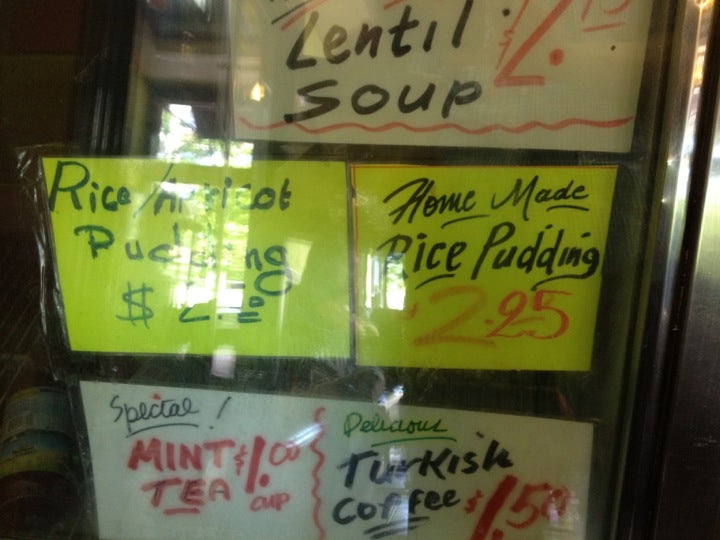 Lentil
SOUP
Rice/Apricot
Pudding
Home Made
Rice Pudding
2.25
Special!
MINT $1.00
TEA CUP
Delicious
Turkish
Coffee $1.50